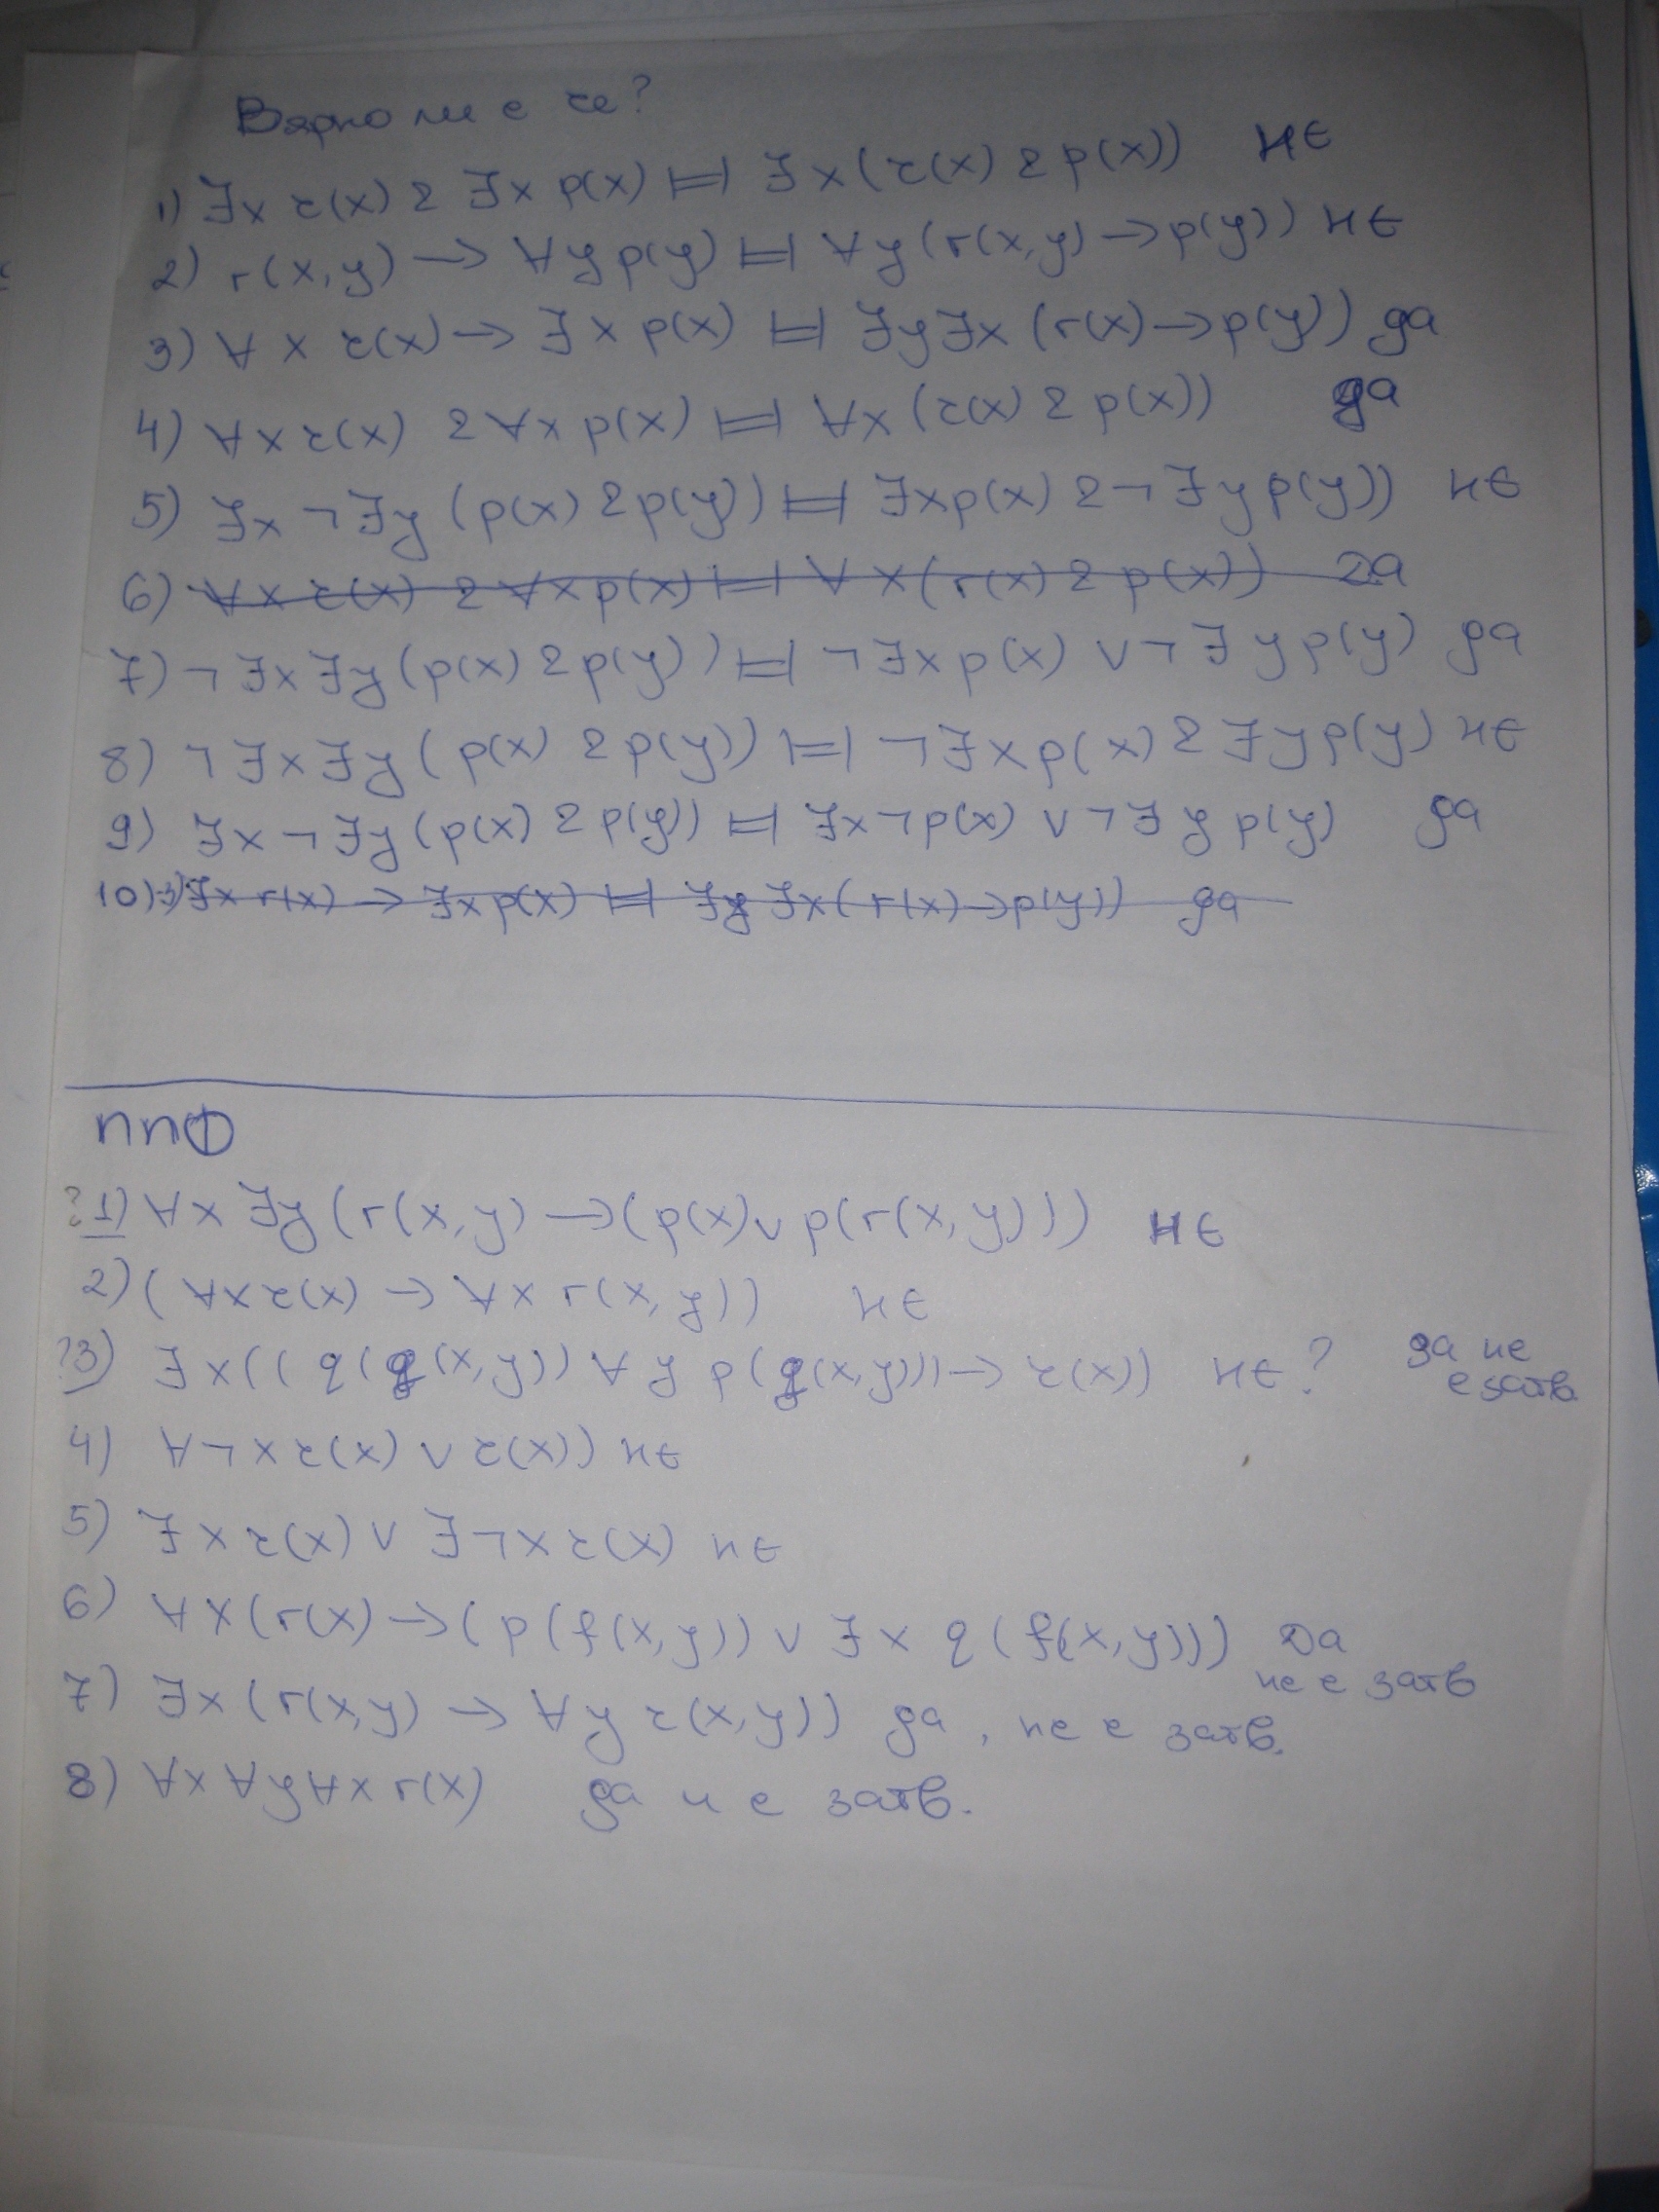 Вярно ли е че?
1) ∃x r(x) & ∃x p(x) |=| ∃x (r(x) & p(x)) НЕ
2) r(x,y) → ∀y p(y) |=| ∀y (r(x,y) → p(y)) НЕ
3) ∀x r(x) → ∃x p(x) |=| ∃y∃x (r(x) → p(y)) да
4) ∀x r(x) & ∀x p(x) |=| ∀x (r(x) & p(x)) да
5) ∃x ¬∃y (p(x) & p(y)) |=| ∃x p(x) & ¬∃y p(y)) НЕ
6) ∀x r(x) & ∀x p(x) |=| ∀x (r(x) & p(x)) да
7) ¬∃x∃y (p(x) & p(y)) |=| ¬∃x p(x) ∨ ¬∃y p(y) да
8) ¬∃x∃y (p(x) & p(y)) |=| ¬∃x p(x) & ∃y p(y) НЕ
9) ∃x ¬∃y (p(x) & p(y)) |=| ∃x ¬p(x) ∨ ¬∃y p(y) да
10) ∃x r(x) → ∃x p(x) |=| ∃y ∃x (r(x) → p(y)) да
ппФ
?1) ∀x ∃y (r(x,y) → (p(x) ∨ p(r(x,y))) НЕ
2) (∀x r(x) → ∀x r(x,y)) НЕ
?3) ∃x ((q(g(x,y)) ∀y p(g(x,y))) → r(x)) НЕ? да не е затв.
4) ∀¬x r(x) ∨ r(x)) НЕ
5) ∃x r(x) ∨ ∃¬x r(x) НЕ
6) ∀x (r(x) → (p(f(x,y)) ∨ ∃x q(f(x,y))) Да не е затв
7) ∃x (r(x,y) → ∀y r(x,y)) да, не е затв.
8) ∀x ∀y ∀x r(x) да и е затв.